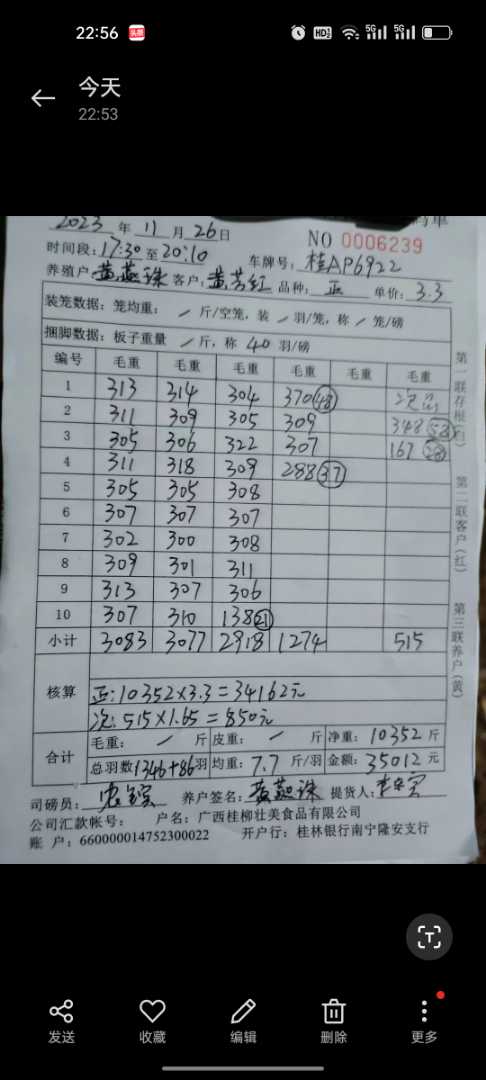 22:56 头条 HD 5G 5G
今天
22:53
2023 年 11 月 26 日
NO 0006239
时间段: 17:30 至 20:10 车牌号: 桂AP6922
养殖户 黄燕珠 客户: 黄芳红 品种: 正 单价: 3.3
装笼数据: 笼均重: / 斤/空笼, 装 / 羽/笼, 称 / 笼/磅
捆脚数据: 板子重量 / 斤, 称 40 羽/磅
编号 毛重 毛重 毛重 毛重 毛重 毛重
1 313 314 304 370 (48) 次
2 311 309 305 309 348 (58)
3 305 306 322 307 167 (28)
4 311 318 309 288 (37)
5 305 305 308
6 307 307 307
7 302 300 308
8 309 301 311
9 313 307 306
10 307 310 138 (21)
小计 3083 3077 2918 1274 515
核算
正: 10352×3.3=34162元
次: 515×1.65=850元
合计 毛重: / 斤 皮重: / 斤 净重: 10352 斤
总羽数 1346+86 羽 均重: 7.7 斤/羽 金额: 35012 元
司磅员: 养户签名: 黄燕珠 提货人:
公司汇款帐号: 户名: 广西桂柳壮美食品有限公司
账 户: 660000014752300022 开户行: 桂林银行南宁隆安支行
第一联存根(白)
第二联客户(红)
第三联养户(黄)
发送 收藏 编辑 删除 更多